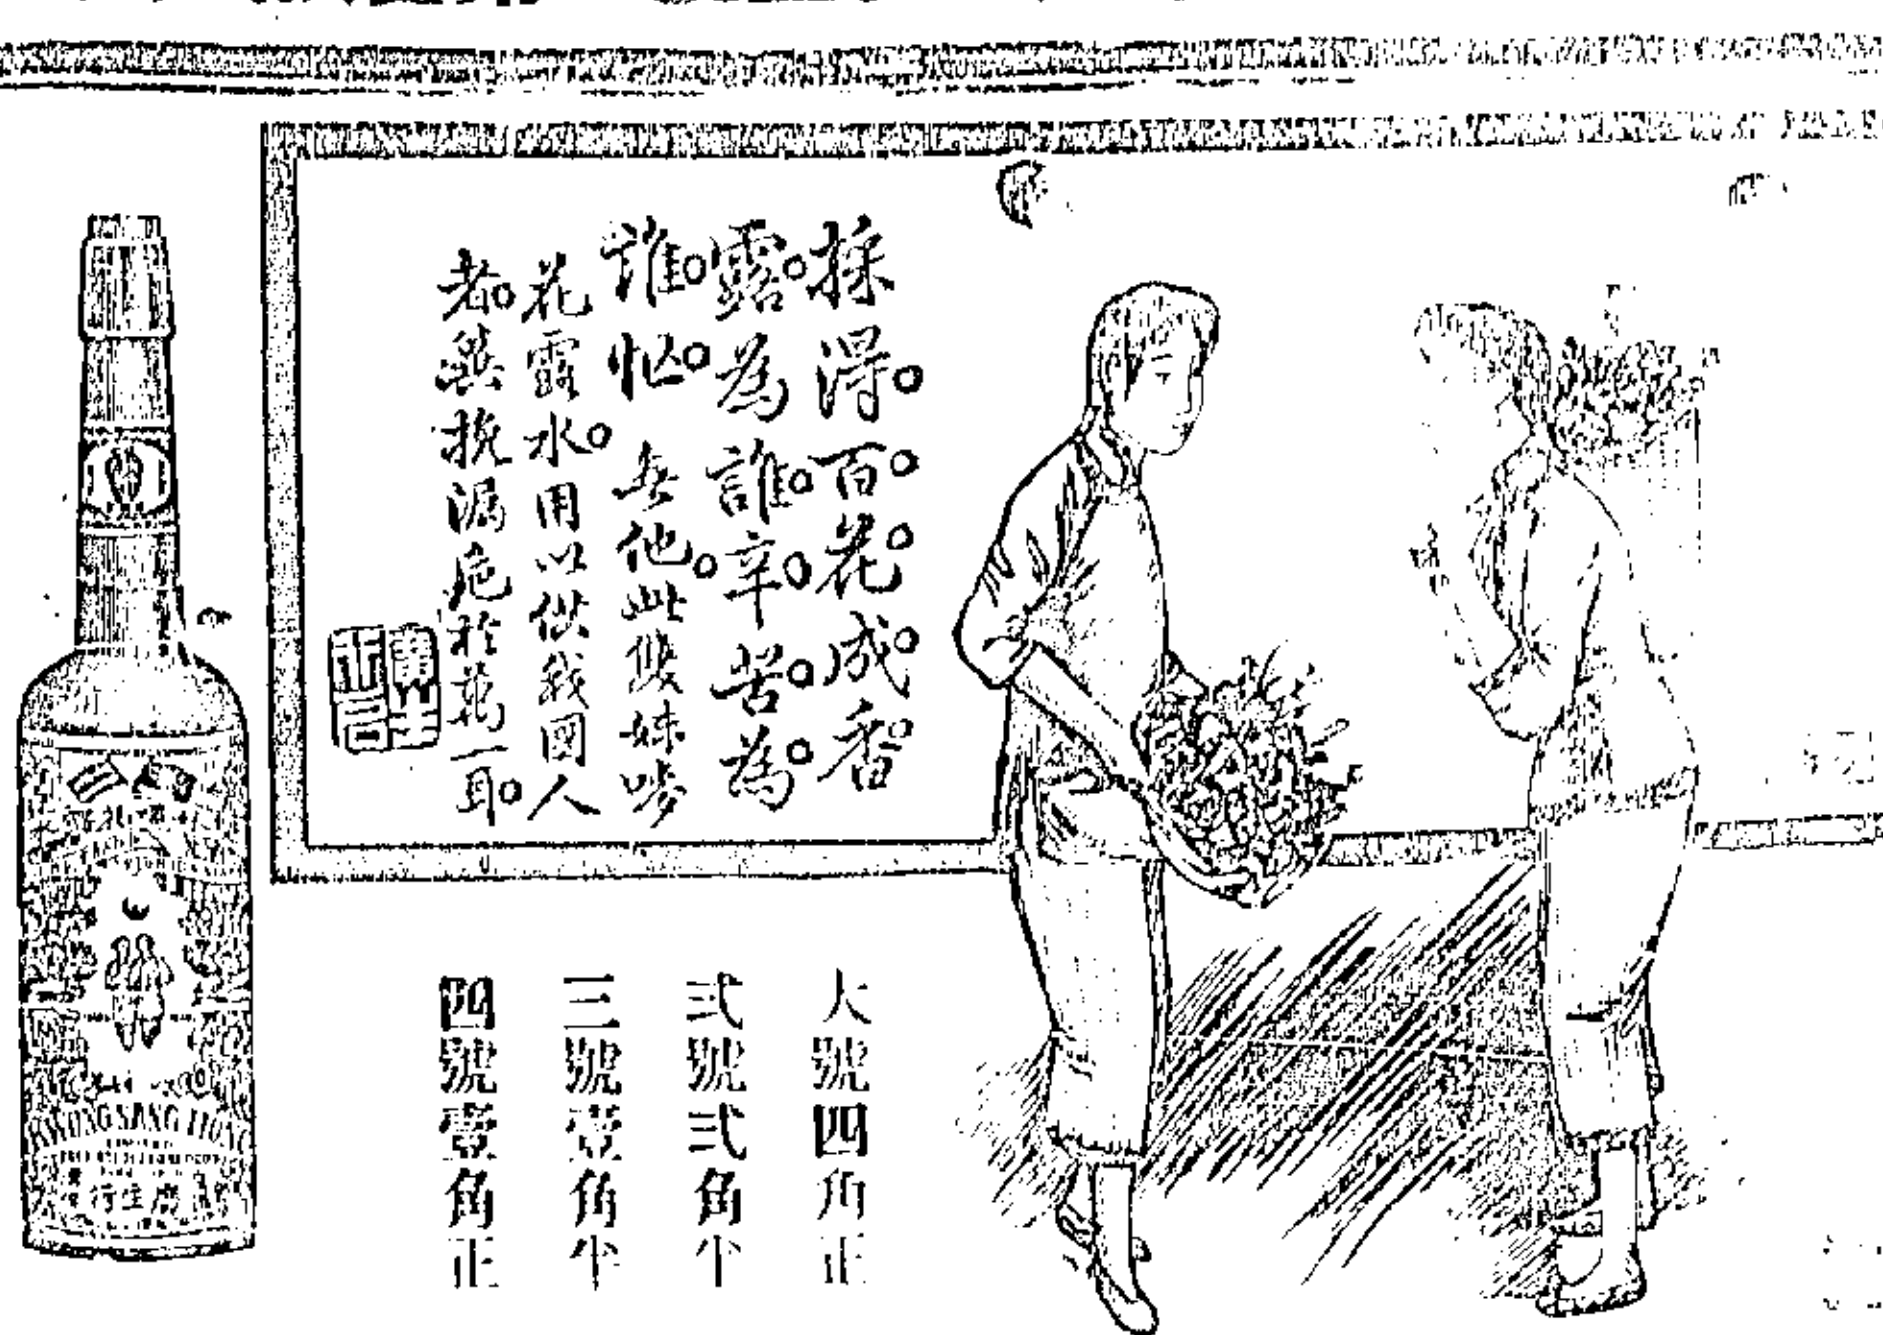 採得百花成香
露為誰辛苦為
誰忙 無他。此雙妹嘜
花露水。用以供我國人
者。冀挽漏卮於萬一耳。
大號四角正
弍號弍角半
三號壹角半
四號壹角正
KWONG SANG HONG
行生廣